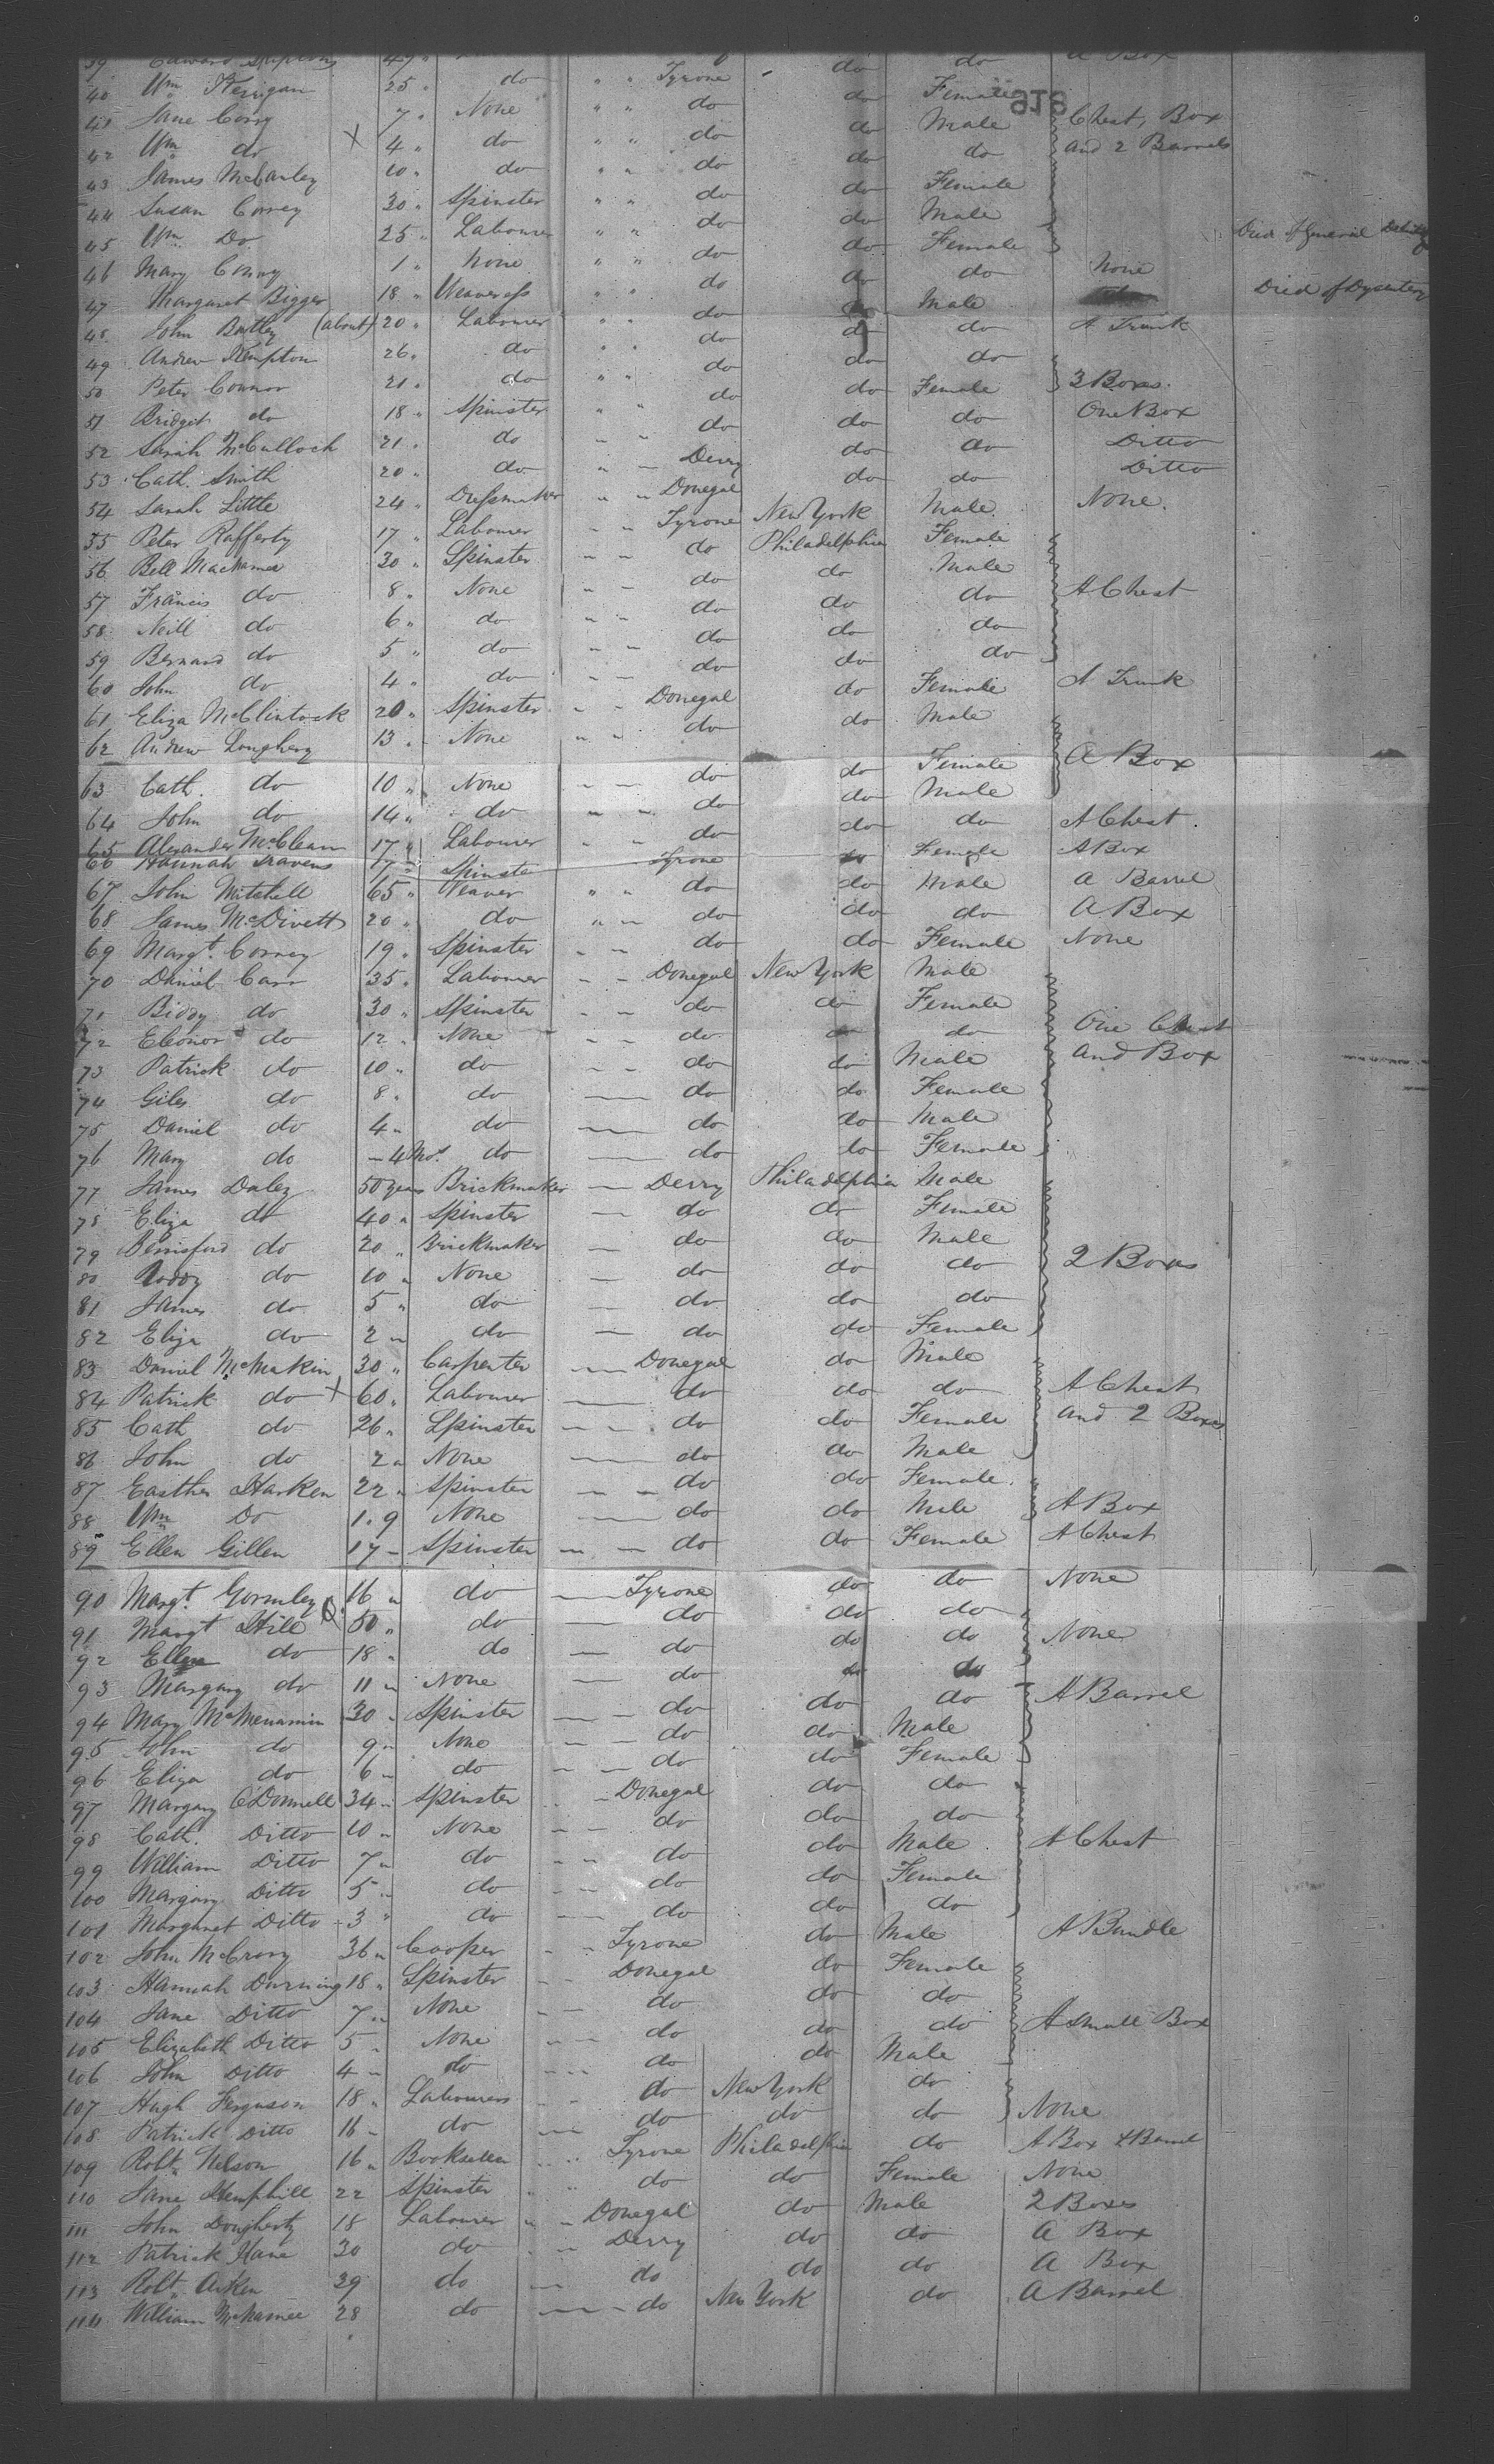 39 Edward 47 " do do A Box
40 Wm Kerrigan 25 " do " " Tyrone do Female
41 Jane Corry 7 " None " " do do Male Chest, Box
42 Wm do X 4 " do " " do do do and 2 Barrels
43 James McCauley 10 " do " " do do Female
44 Susan Correy 30 " Spinster " " do do Male
45 Wm Do 25 " Labourer " " do do Female Died of General Debility
46 Mary Conny 1 " None " " do do do None
47 Margaret Bigger 18 " Weaveress " " do do Male Died of Dysentery
48 John Bartley (about) 20 " Labourer " " do do do A Trunk
49 Andrew Kempton 26 " do " " do do do
50 Peter Connor 21 " do " " do do Female 3 Boxes
51 Bridget do 18 " Spinster " " do do do One Box
52 Sarah McCulloch 21 " do " " do do do Ditto
53 Cath. Smith 20 " do " " Derry do do Ditto
54 Sarah Little 24 " Dressmaker " " Donegal New York Male None.
55 Peter Rafferty 17 " Labourer " " Tyrone Philadelphia Female
56 Bell MacNamee 30 " Spinster " " do do Male
57 Francis do 8 " None " " do do do A Chest
58 Neill do 6 " do " " do do do
59 Bernard do 5 " do " " do do do
60 John do 4 " do " " do do Female A Trunk
61 Eliza McClintock 20 " Spinster " " Donegal do Male
62 Andrew Loughery 13 " None " " do
63 Cath. do 10 " None " " do do Female A Box
64 John do 14 " do " " do do Male
65 Alexander McClean 17 " Labourer " " do do do A Chest.
66 Hannah Travens 17 " Spinster Tyrone do Female A Box
67 John Mitchell 65 " Weaver " " do do Male A Barrel
68 James McDivett 20 " do " " do do do A Box
69 Margt. Correy 19 " Spinster " " do do Female None
70 Daniel Carr 35 " Labourer " " Donegal New York Male
71 Biddy do 30 " Spinster " " do do Female
72 Eleonor do 12 " None " " do do do One Chest
73 Patrick do 10 " do " " do do Male and Box
74 Giles do 8 " do do do Female
75 Daniel do 4 " do do do Male
76 Mary do 4 Mos. do do do Female
77 James Daley 50 years Brickmaker Derry Philadelphia Male
78 Eliza do 40 " Spinster do do Female
79 Berrisford do 20 " Brickmaker do do Male
80 Roddy do 10 " None do do do 2 Boxes
81 James do 5 " do do do do
82 Eliza do 2 " do do do Female
83 Daniel McMakin 30 " Carpenter Donegal do Male
84 Patrick do X 60 " Labourer do do do A Chest
85 Cath do 26 " Spinster do do Female and 2 Boxes
86 John do 2 " None do do Male
87 Easther Harken 22 " Spinster do do Female
88 Wm Do 1.9 None do do Male A Box
89 Ellen Gillen 17 " Spinster do do Female A Chest
90 Margt. Gormley 16 " do Tyrone do do None
91 Margt Hill 50 " do do do do
92 Ellen do 18 " do do do do None
93 Margary do 11 " None do do do
94 Mary McMenamin 30 " Spinster do do do A Barrel
95 John do 9 " None do do Male
96 Eliza do 6 " do do do Female
97 Margary O'Donnell 34 " Spinster Donegal do do
98 Cath. Ditto 10 " None do do do
99 William Ditto 7 " do do do Male A Chest
100 Margary Ditto 5 " do do do Female
101 Margaret Ditto 3 " do do do do
102 John McCrory 36 " Cooper Tyrone do Male A Bundle
103 Hannah Durning 18 " Spinster Donegal do Female
104 Jane Ditto 7 " None do do do
105 Elizabeth Ditto 5 " None do do do A Small Box
106 John Ditto 4 " do do do Male
107 Hugh Ferguson 18 " Labourers do New York do
108 Patrick Ditto 16 " do do do do None
109 Robt. Nelson 16 " Bookseller Tyrone Philadelphia do A Box & Barrel
110 Jane Hemphill 22 Spinster do do Female None
111 John Dougherty 18 Labourer " " Donegal do Male 2 Boxes
112 Patrick Kane 30 do " " Derry do do A Box
113 Robt. Aiken 29 do do do do A Box
114 William McNamee 28 do do New York do A Barrel